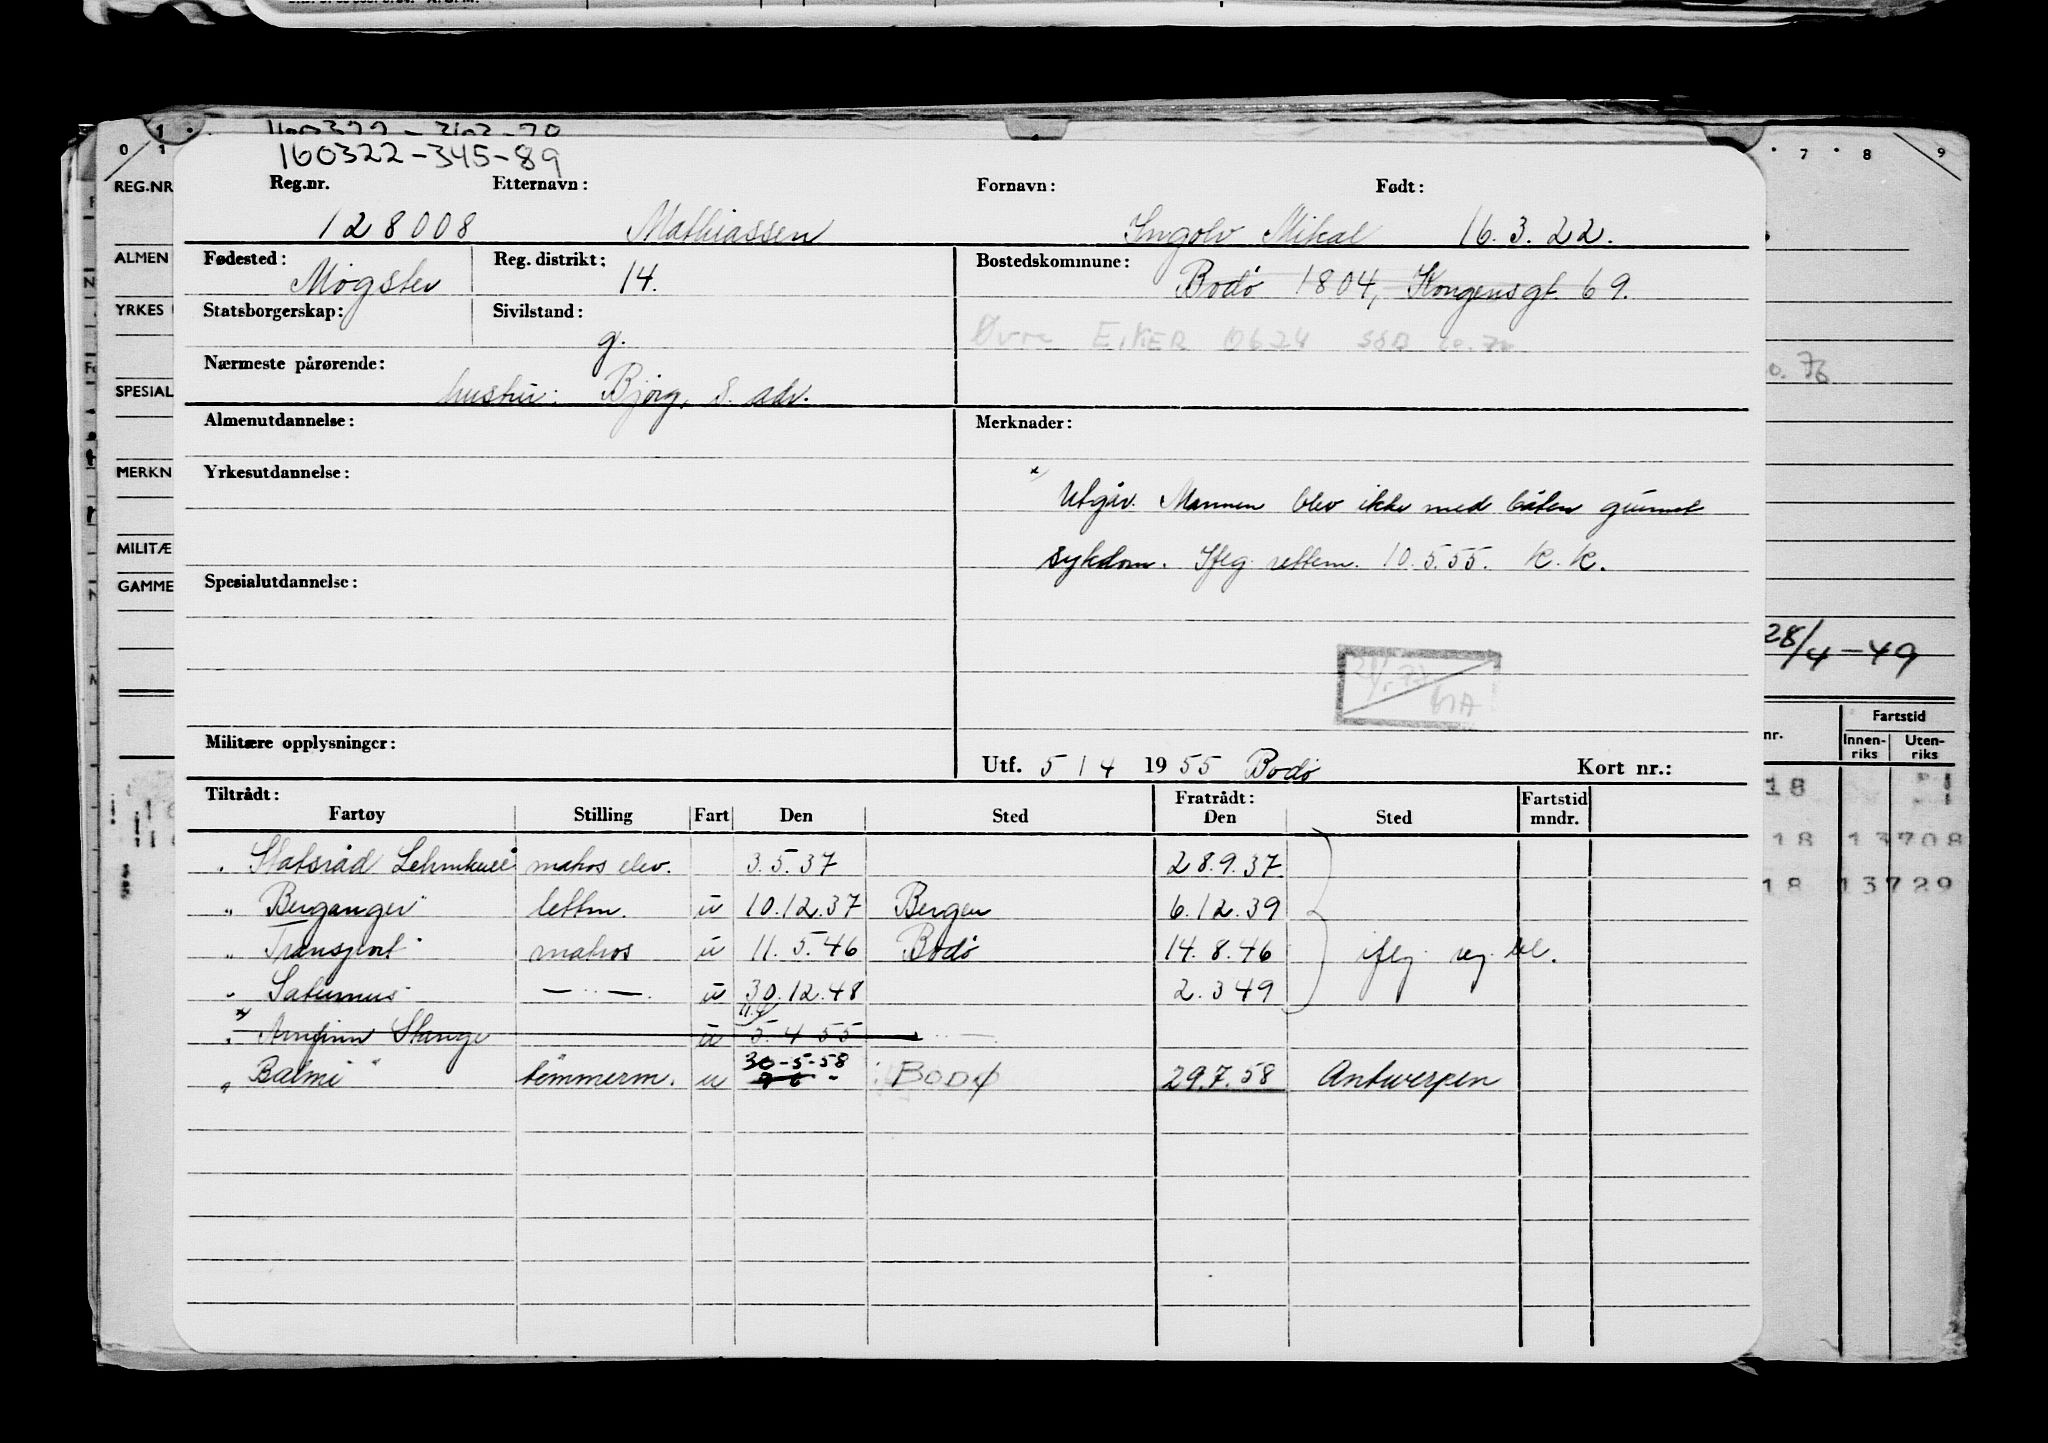 160322-345-89
Reg.nr. Etternavn: Fornavn: Født:
128008 Mathiassen Ingolv Mikal 16.3.22.
Fødested: Reg. distrikt: Bostedskommune:
14. Bodø 1804, Kongensgt. 69.
Statsborgerskap: Sivilstand:
g.
Øvre EIKER 0624 SSB
Nærmeste pårørende:
hustru: Bjørg, s. adr.
Almenutdannelse: Merknader:
Yrkesutdannelse:
Utgår. Mannen blev ikke med båten grunnet
sykdom. Ifleg rettem. 10.5.55. K.K.
Spesialutdannelse:
Militære opplysninger:
Utf. 5/4 1955 Bodø Kort nr.:
Tiltrådt: Fratrådt: Fartstid
Fartøy Stilling Fart Den Sted Den Sted mndr.
Statsråd Lehmkuhl matros elev. 3.5.37 28.9.37
" Berganger" lettm. u 10.12.37 Bergen 6.12.39
" Transport" matros u 11.5.46 Bodø 14.8.46 ifleg.
" Saturnus" — " —. u 30.12.48 2.3 49
x Arnfinn Stange u 5.4 55
" Balmi" tömmerm. u 30-5-58 BODØ 29.7.58 Antwerpen
REG.NR
ALMEN
YRKES
SPESIAL
MERKN
MILITÆ
GAMME
7 8 9
28/4-49
Fartstid
nr. Innen-riks Uten-riks
18
18 13708
18 13729